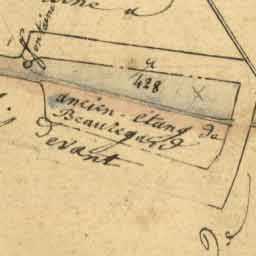 fontaine
a
428
ancien etang de
Beauregard
Devant
De